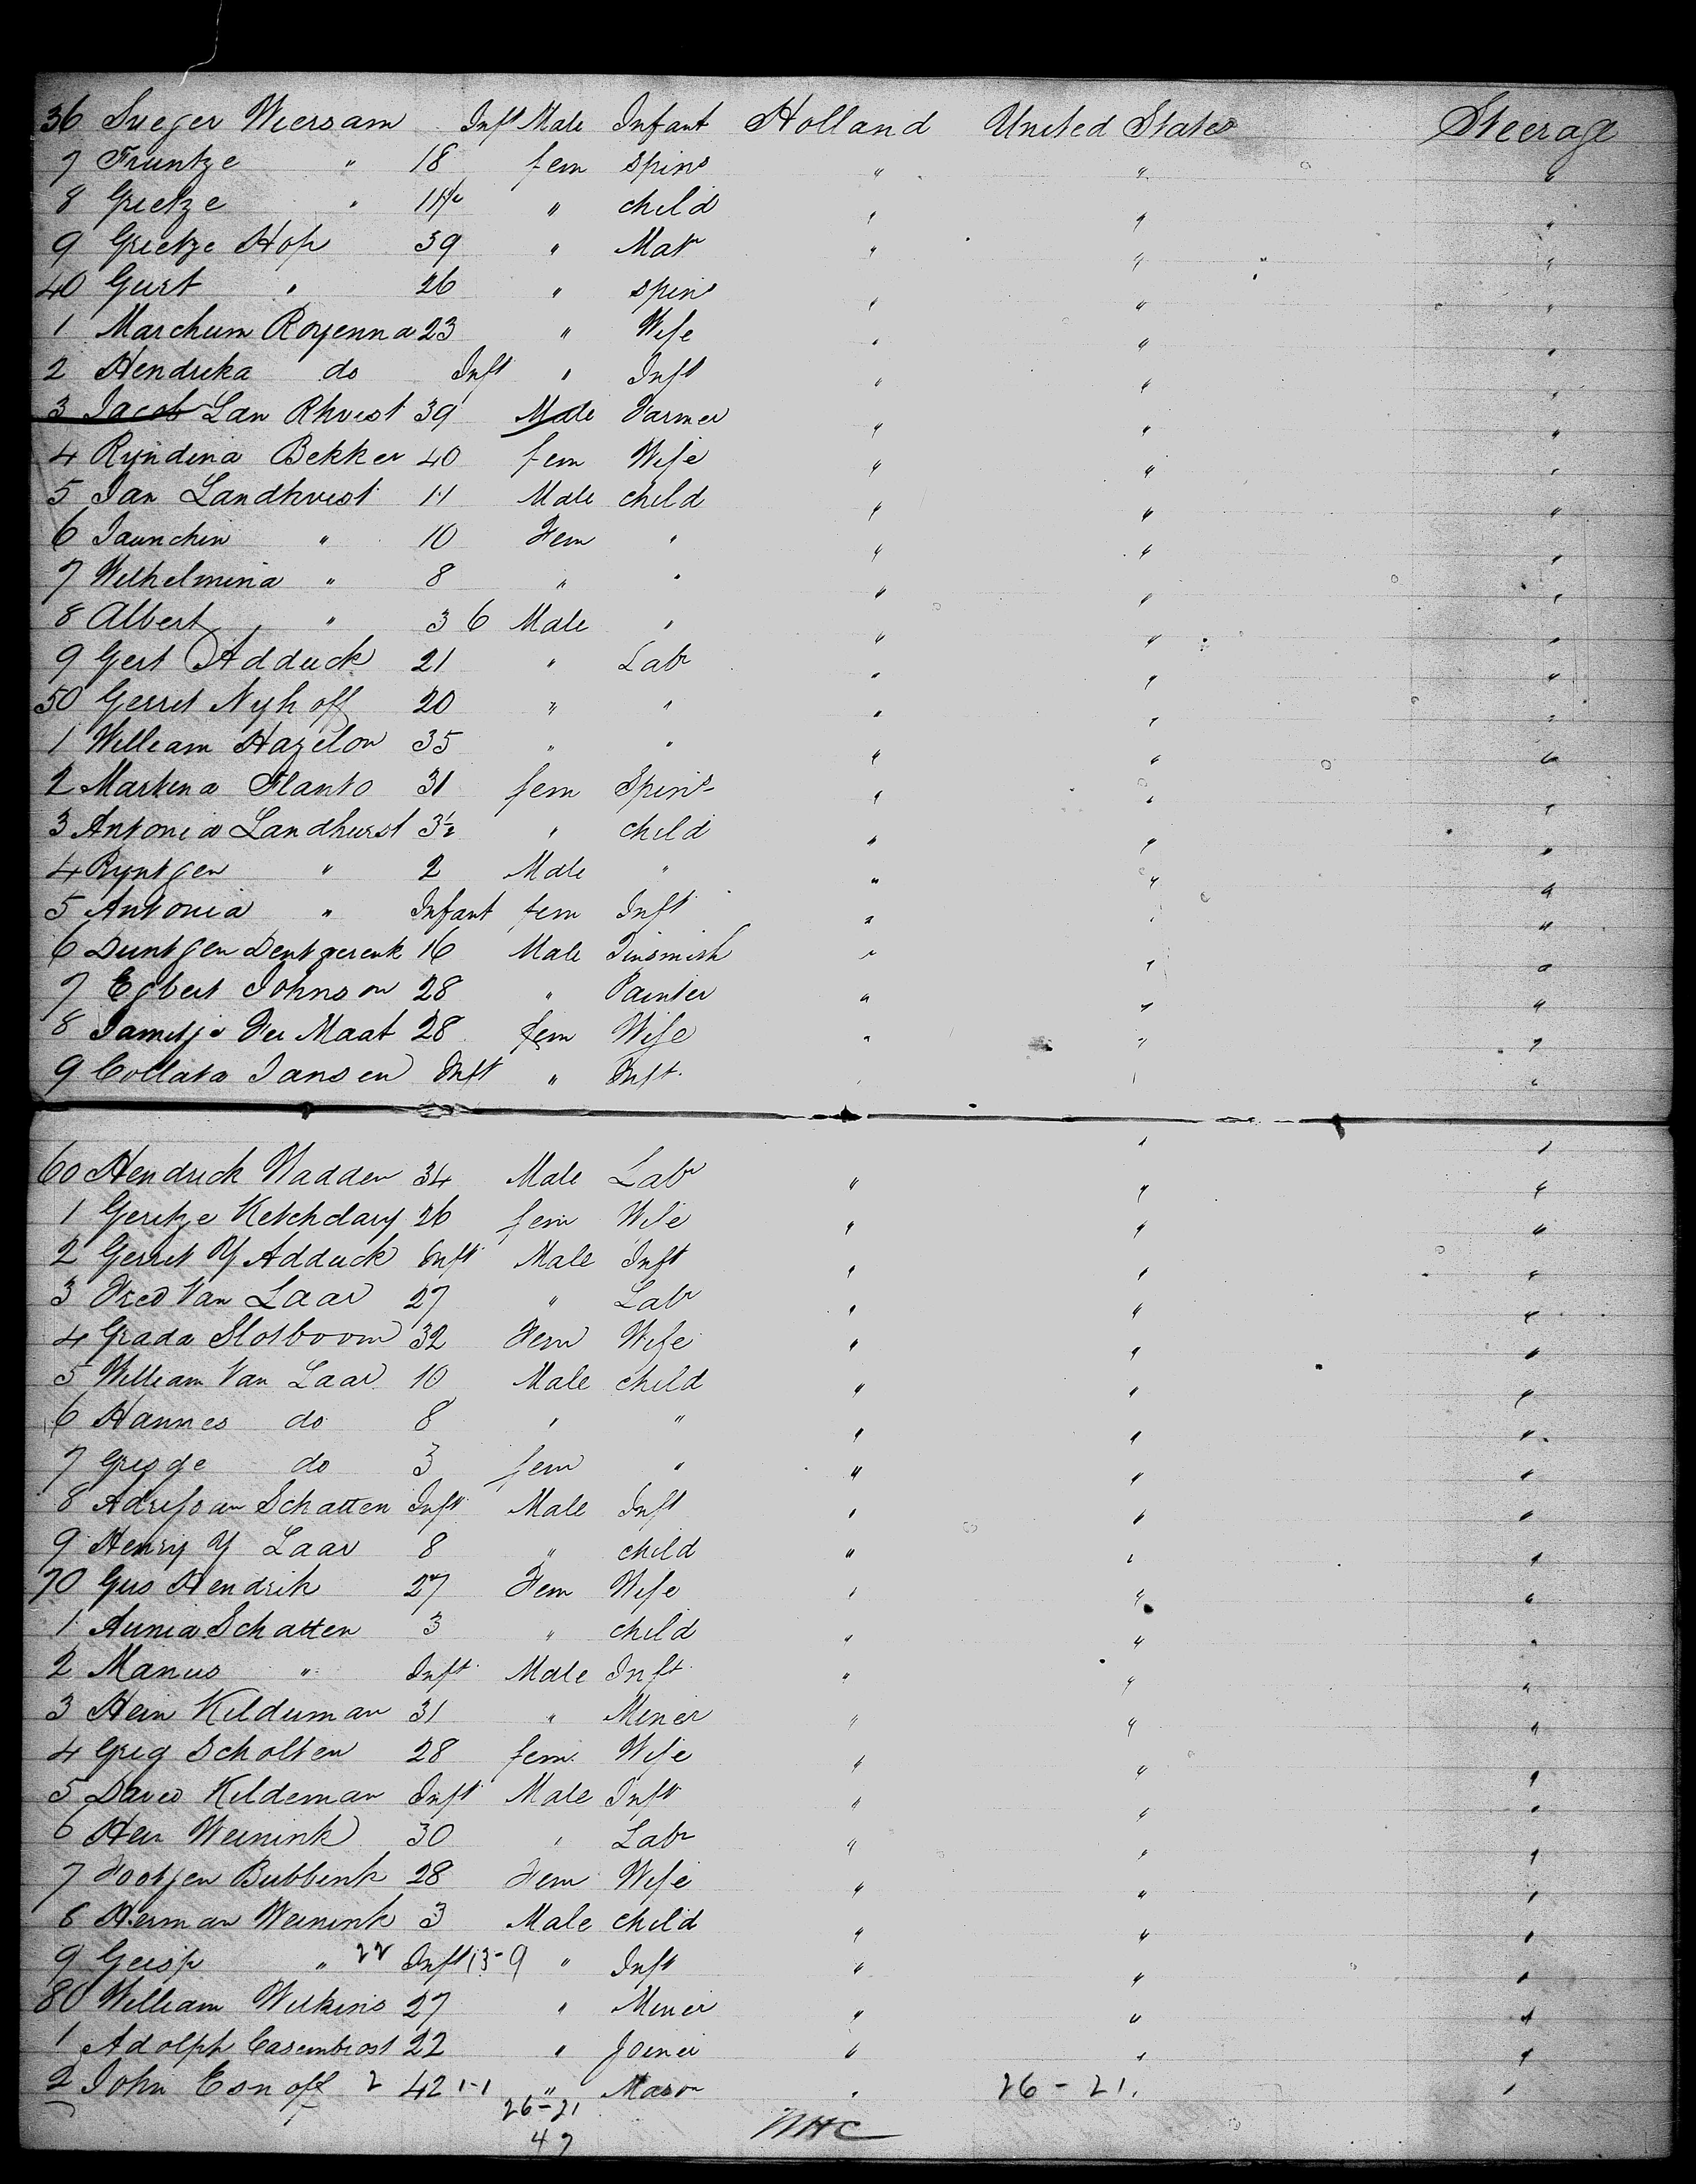 36 Sueger Wiersam Inft Male Infant Holland United States Steerage
7 Fruntze " 18 fem Spins " " "
8 Grietze " 11 " child " " "
9 Grietze Hop 39 " Matr " " "
40 Gurt " 26 " spins " " "
1 Marchum Royenna 23 " Wife " " "
2 Hendrika do Inft " Inft " " "
3 Jacob Lan Rhvest 39 Male Farmer " " "
4 Ryndina Bekker 40 fem Wife " " "
5 Jan Landhvest 11 Male child " " "
6 Jaunchin " 10 Fem " " " "
7 Wilhelmina " 8 " " " " "
8 Albert " 3 6 Male " " " "
9 Gert Adduck 21 " Labr " " "
50 Gerret Nyhoff 20 " " " " "
1 William Hazelon 35 " " " " "
2 Martina Flanto 31 fem Spins " " "
3 Antonia Landhurst 3½ " child " " "
4 Ryntgen " 2 Male " " " "
5 Antonia " Infant fem Inft " " "
6 Duntgen Dentgerenk 16 Male Tinsmith " " "
7 Egbert Johnson 28 " Painter " " "
8 Jametje Der Maat 28 fem Wife " " "
9 Collata Jansen Inft " Inft " " "
60 Hendrick Nadden 34 Male Labr " " "
1 Geritze Ketchdary 26 fem Wife " " "
2 Gerret Y Adduck Inft Male Inft " " "
3 Fred Van Laar 27 " Labr " " "
4 Grada Slotboom 32 Fem Wife " " "
5 William Van Laar 10 Male child " " "
6 Hannes do 8 " " " " "
7 Gresge do 3 fem " " " "
8 Schatten Inft Male Inft " " "
9 Henry Y Laar 8 " child " " "
70 Gus Hendrik 27 Fem Wife " " "
1 Annia Schatten 3 " child " " "
2 Manus " Inft Male Inft " " "
3 Hein Kilduman 31 " Miner " " "
4 Greg Scholten 28 fem Wife " " "
5 David Kildeman Inft Male Inft " " "
6 Hen Weinink 30 " Labr " " "
7 Footjen Bubbink 28 Fem Wife " " "
8 Herman Weinink 3 Male child " " "
9 Geesp " 22 Inft 13-9 " Inft " " "
80 William Wilkins 27 " Miner " " "
1 Adolph Casembrost 22 " Joiner " " "
2 John Esnoff 2 42 1-1 " Mason " 26-21. "
26-21
47 NHC